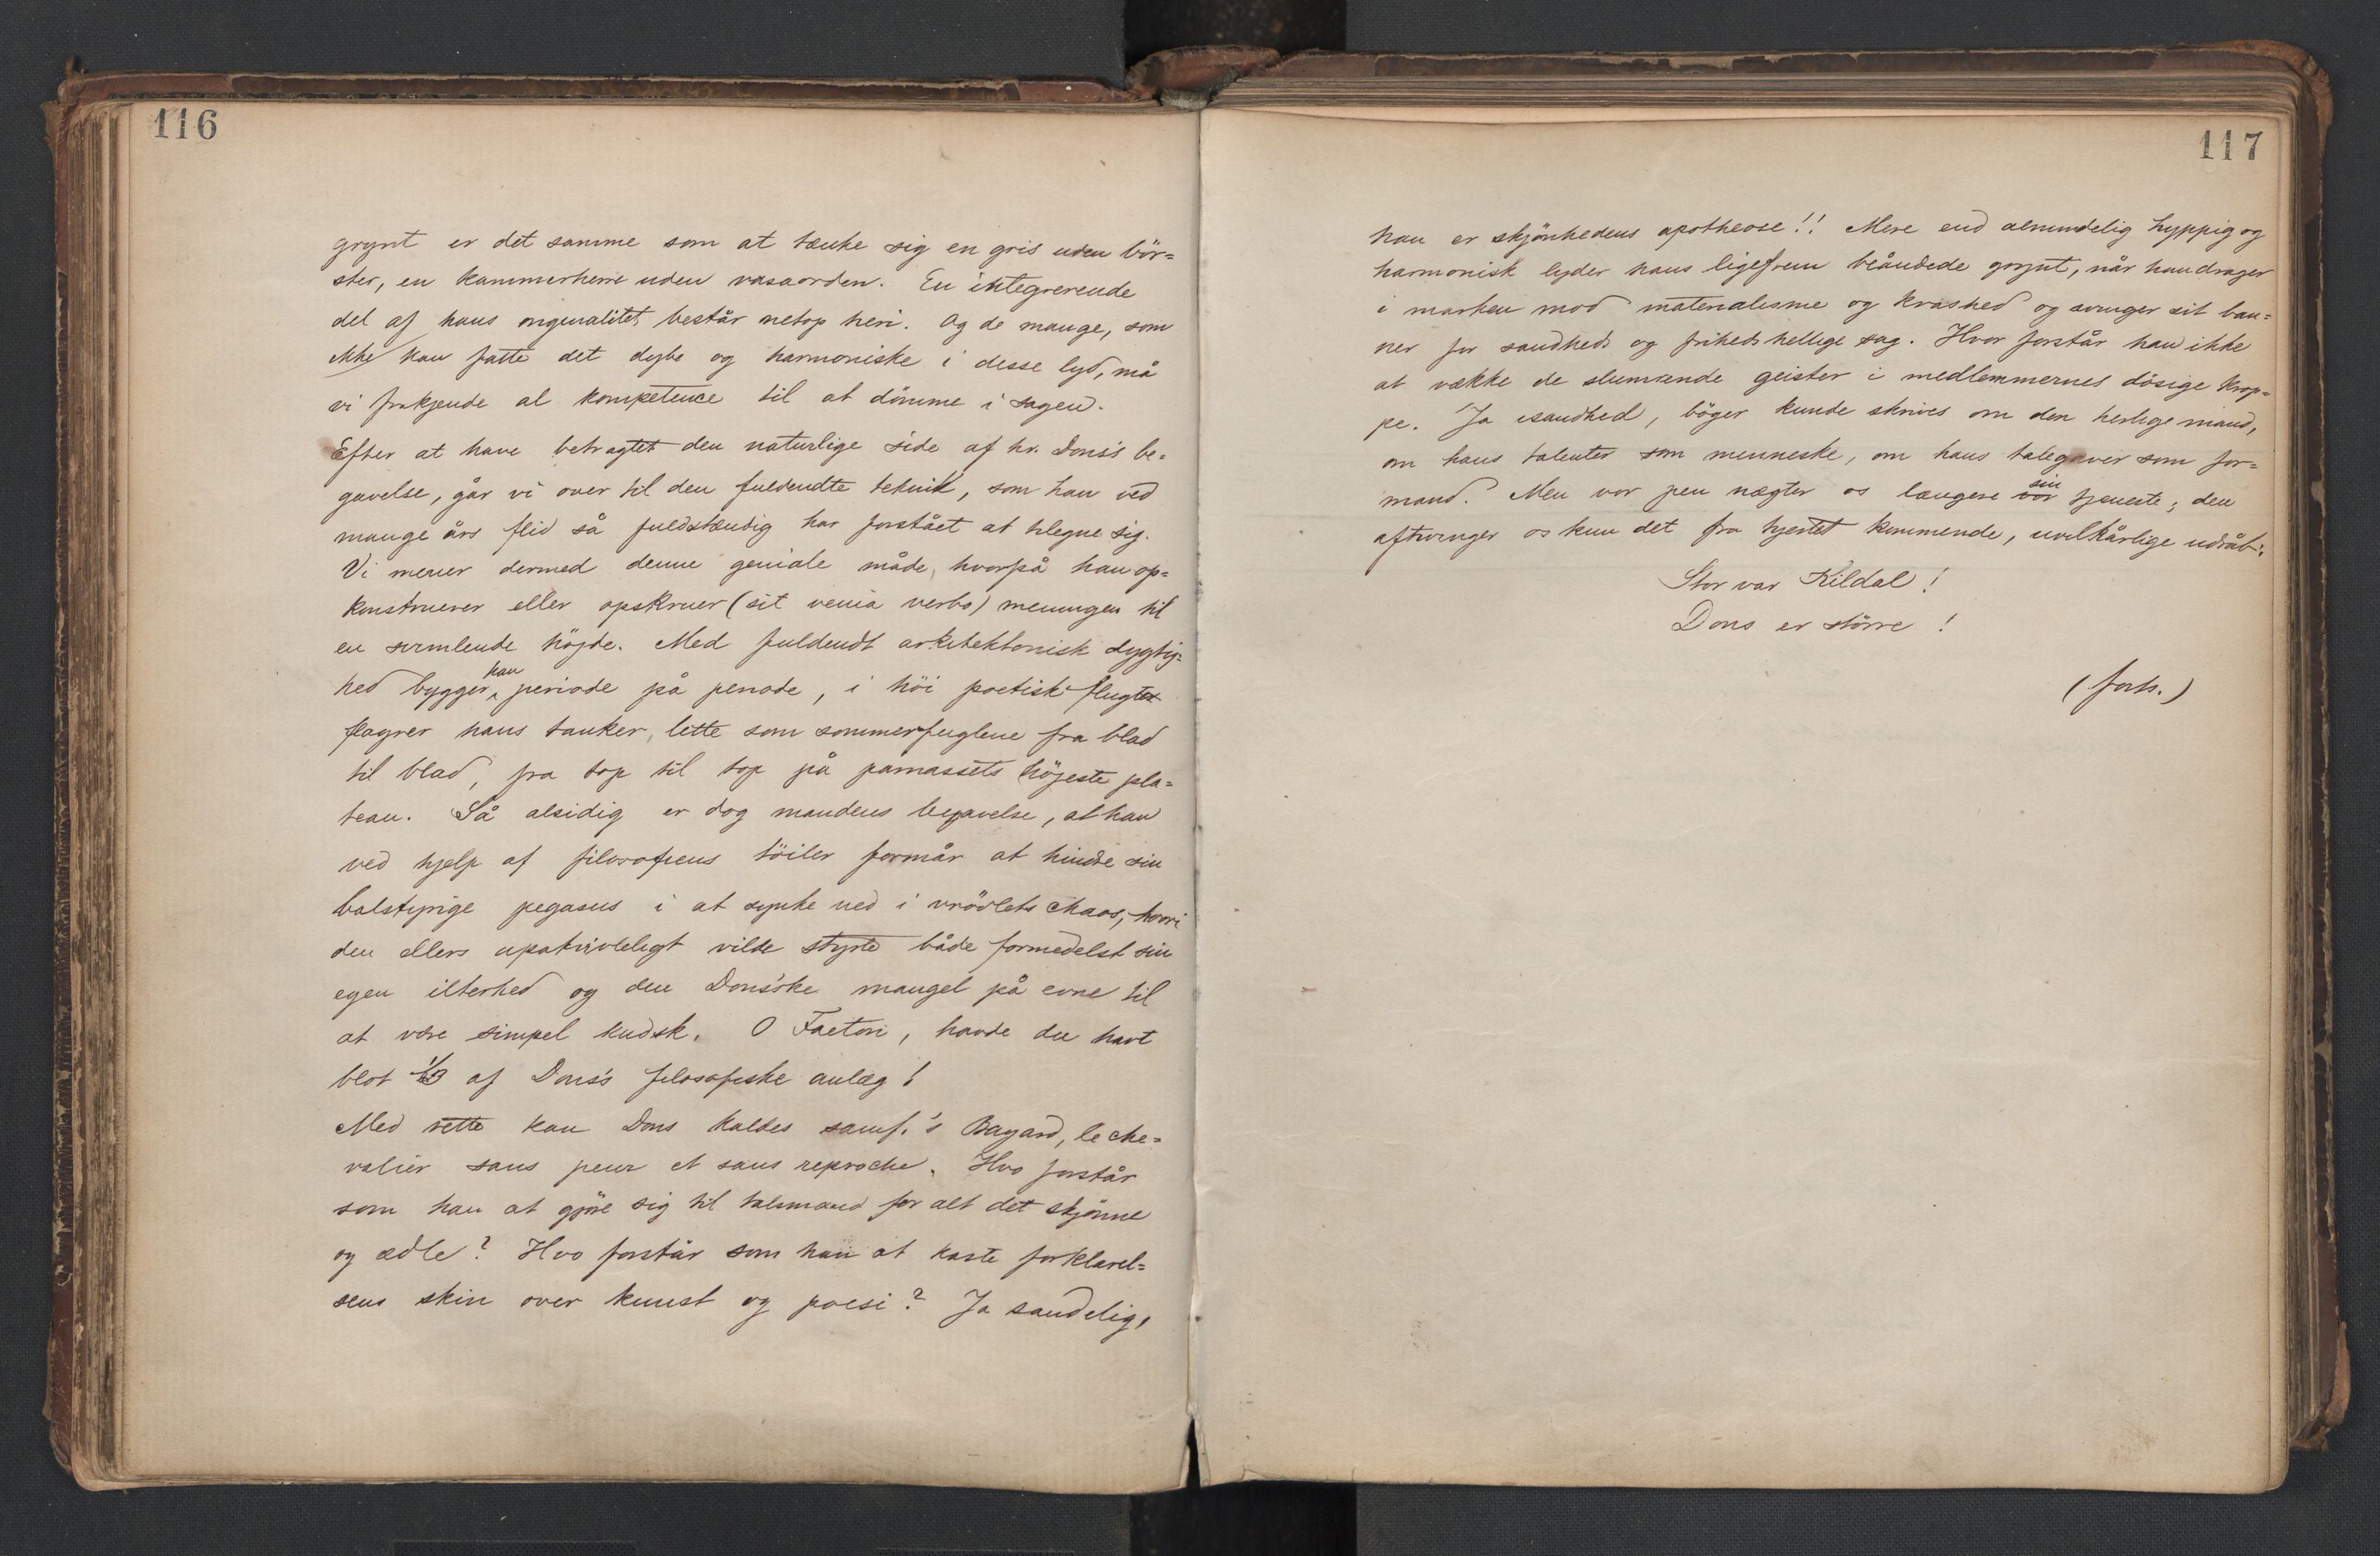 116
grynt er det samme som at tænke sig en gris uden bör=
ster, en kammerherre uden vasaorden. En integrerende
del af hans originalitet består netop heri. Og de mange, som
ikke kan fatte det dybe og harmoniske i desse lyd, må
vi frakjende al kompetence til at dömme i sagen.
Efter at have betragtet den naturlige side af hr. Dons's be=
gavelse, går vi over til den fuldendte teknik, som han ved
mange års flid så fuldstændig har forstået at tilegne sig.
Vi mener dermed denne geniale måde, hvorpå han op=
konstruerer eller opskruer (sit venia verbo) meningen til
en svimlende höjde. Med fuldendt arkitektonisk dygtig=
hed bygger han periode på periode, i höi poetisk flugt
flagrer hans tanker, lette som sommerfuglene fra blad
til blad, fra top til top på parnassets höjeste pla=
teau. Så alsidig er dog mandens begavelse, at han
ved hjelp af filosofiens töiler formår at hindre sin
balstyrige pegasus i at synke ned i vrövlets chaos, hvori
den ellers upatvivleligt vilde styrte både formedelst sin
egen ilterhed og den Dons'ske mangel på evne til
at være simpel kudsk. O Faeton, havde du havt
blot 1/3 af Dons's filosofiske anlæg!
Med rette kan Dons kaldes samf.'s Bayard, le che=
valier sans peur et sans reproche. Hvo forstår
som han at gjöre sig til talsmand for alt det skjönne
og ædle? Hvo forstår som han at kaste forklarel=
sens skin over kunst og poesi? Ja sandelig,
117
han er skjönhedens apotheose!! Mere end almindelig hyppig og
harmonisk lyder hans ligefrem beåndede grynt, når han drager
i marken mod materialisme og kråshed og svinger sit ban=
ner for sandheds og friheds hellige sag. Hvor forstår han ikke
at vække de slumrende geister i medlemmernes dösige krop=
pe. Ja isandhed, böger kunde skrives om den herlige mand,
om hans talenter som menneske, om hans talegaver som for=
mand. Men vor pen nægter os længere sin tjeneste; den
aftvinger os kun det fra hjertet kommende, uvilkårlige udråb:
Stor var Kildal!
Dons er större!
(forts.)